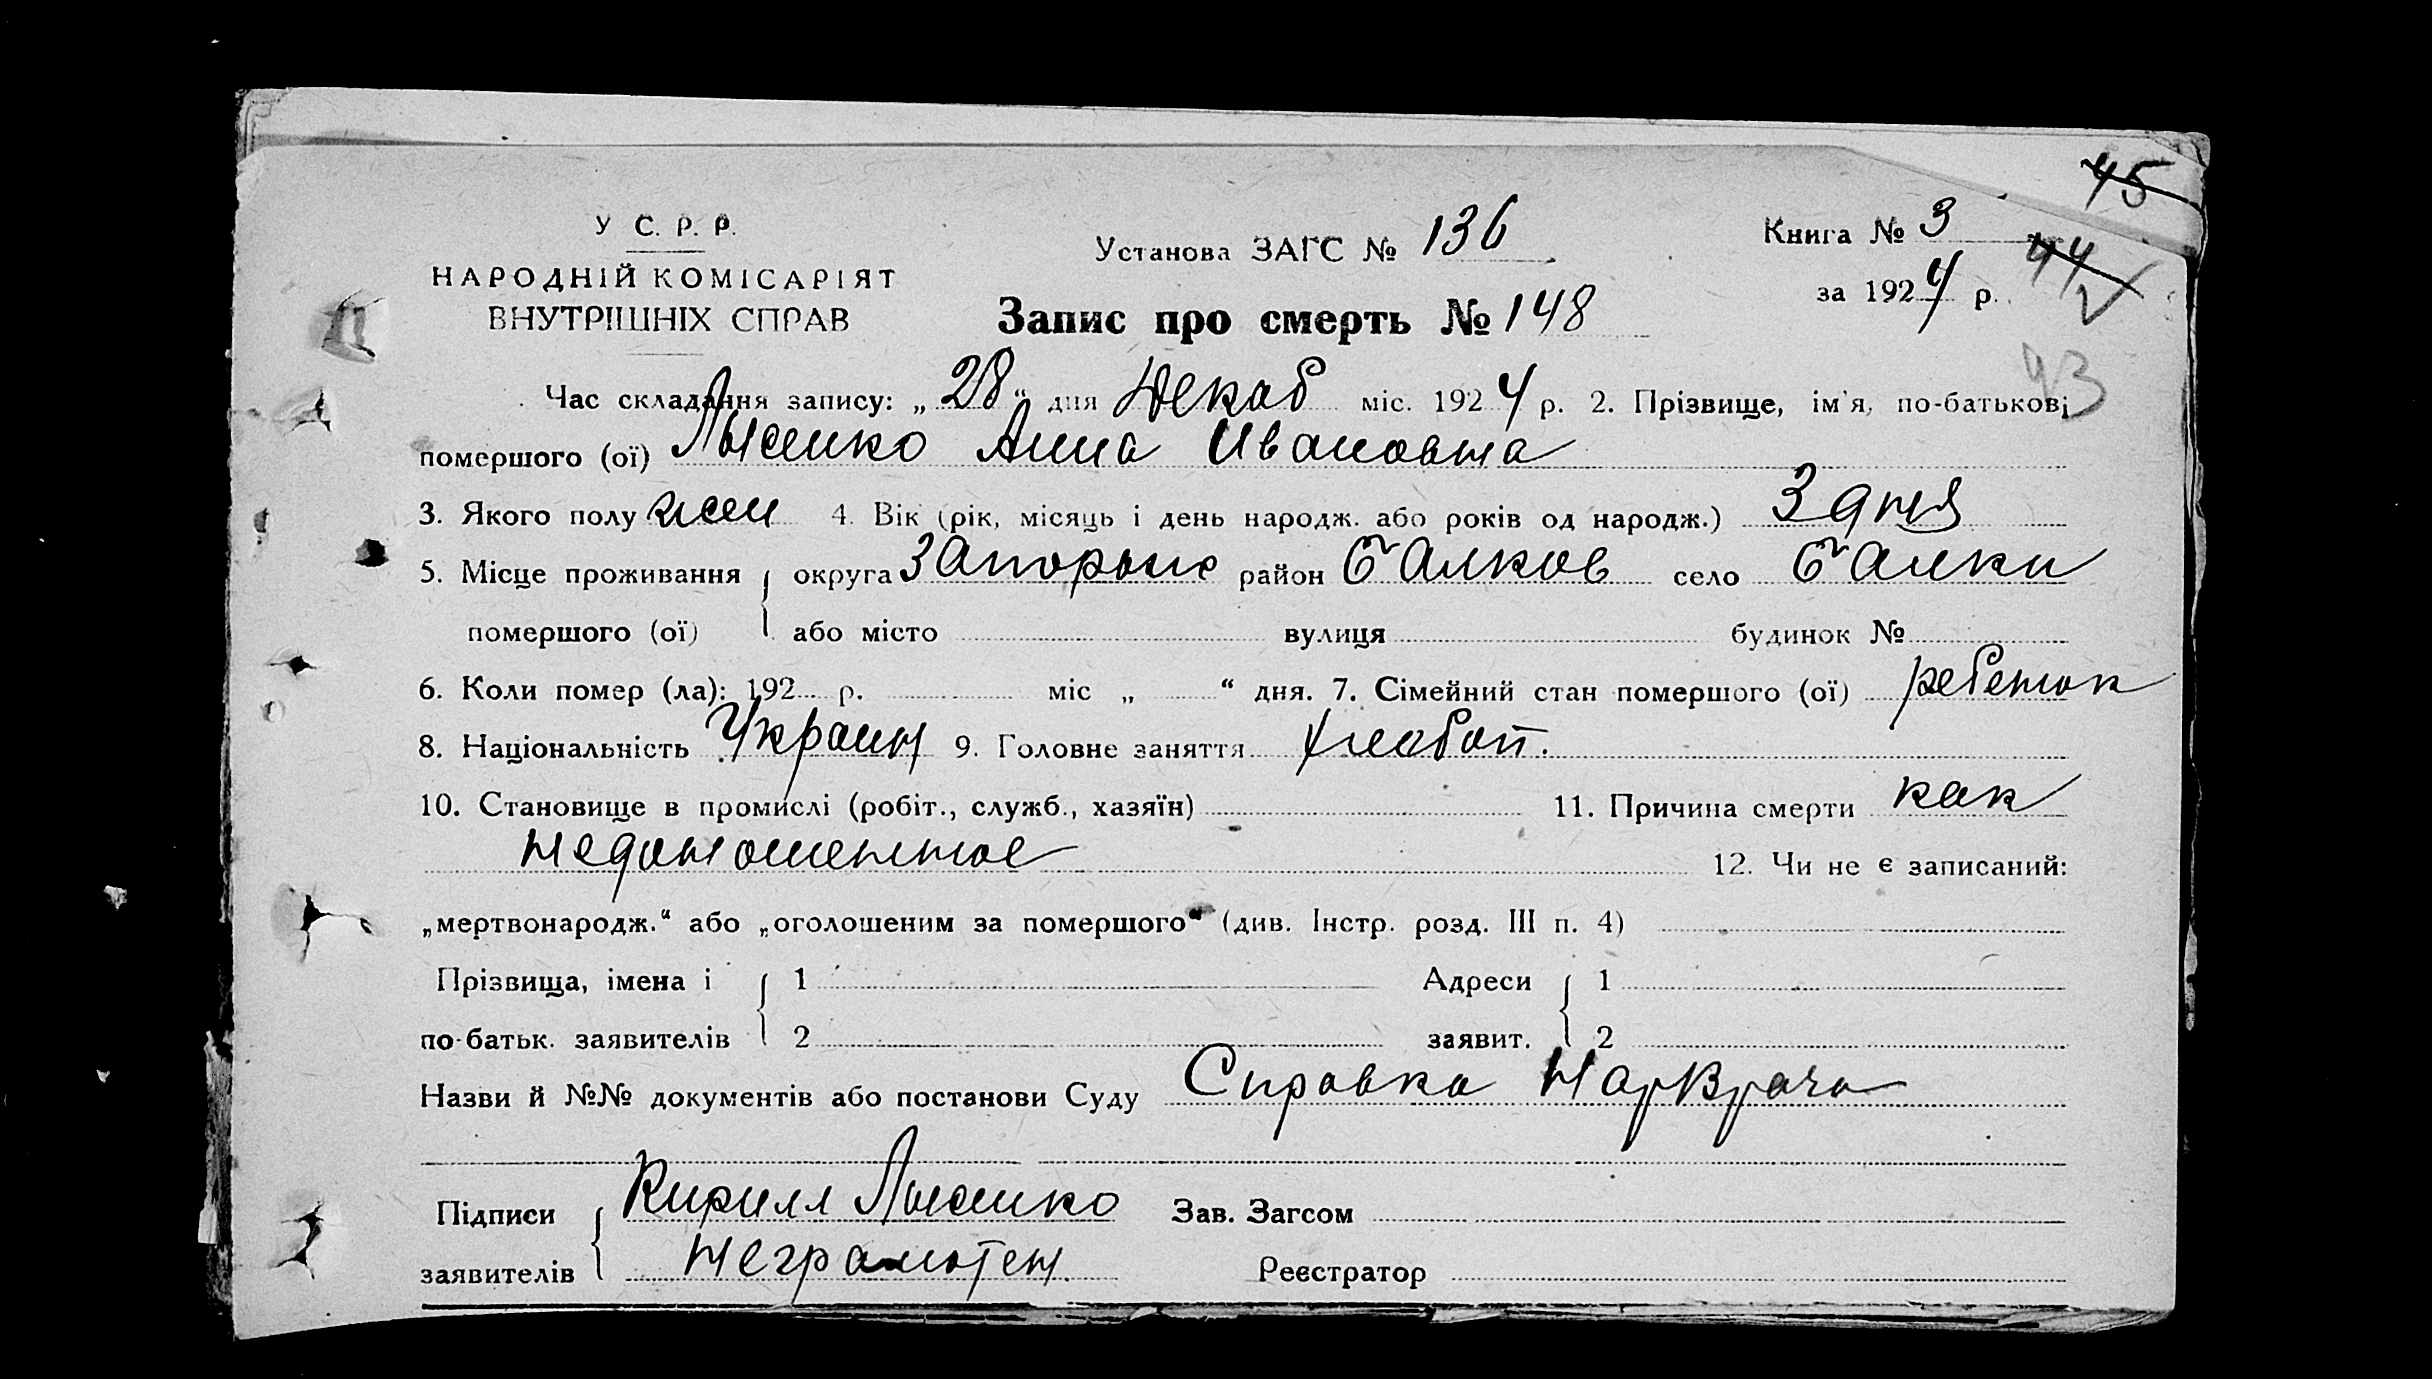 45
У С. Р. Р.
НАРОДНІЙ КОМІСАРІЯТ
ВНУТРІШНІХ СПРАВ
Установа ЗАГС № 136
Книга № 3
44
за 1924 р.
Запис про смерть № 148
43
Час складання запису: „28“ дня Декаб міс. 1924 р. 2. Прізвище, ім'я, по-батькові
помершого (ої) Лысенко Анна Ивановна
3. Якого полу жен 4. Вік (рік, місяць і день народж. або років од народж.) 3 дня
5. Місце проживання округа Запорож район Балков село Балки
помершого (ої) або місто вулиця будинок №
6. Коли помер (ла): 192 р. міс „ “ дня. 7. Сімейний стан помершого (ої) ребенок
8. Національність Украин 9. Головне заняття хлебоп.
10. Становище в промислі (робіт., служб., хазяїн) 11. Причина смерти как
недоношенное 12. Чи не є записаний:
„мертвонародж.“ або „оголошеним за помершого“ (див. Інстр. розд. III п. 4)
Прізвища, імена і 1 Адреси 1
по-батьк. заявителів 2 заявит. 2
Назви й №№ документів або постанови Суду Справка НарВрача
Підписи Кирилл Лысенко Зав. Загсом
заявителів неграмотен. Реєстратор